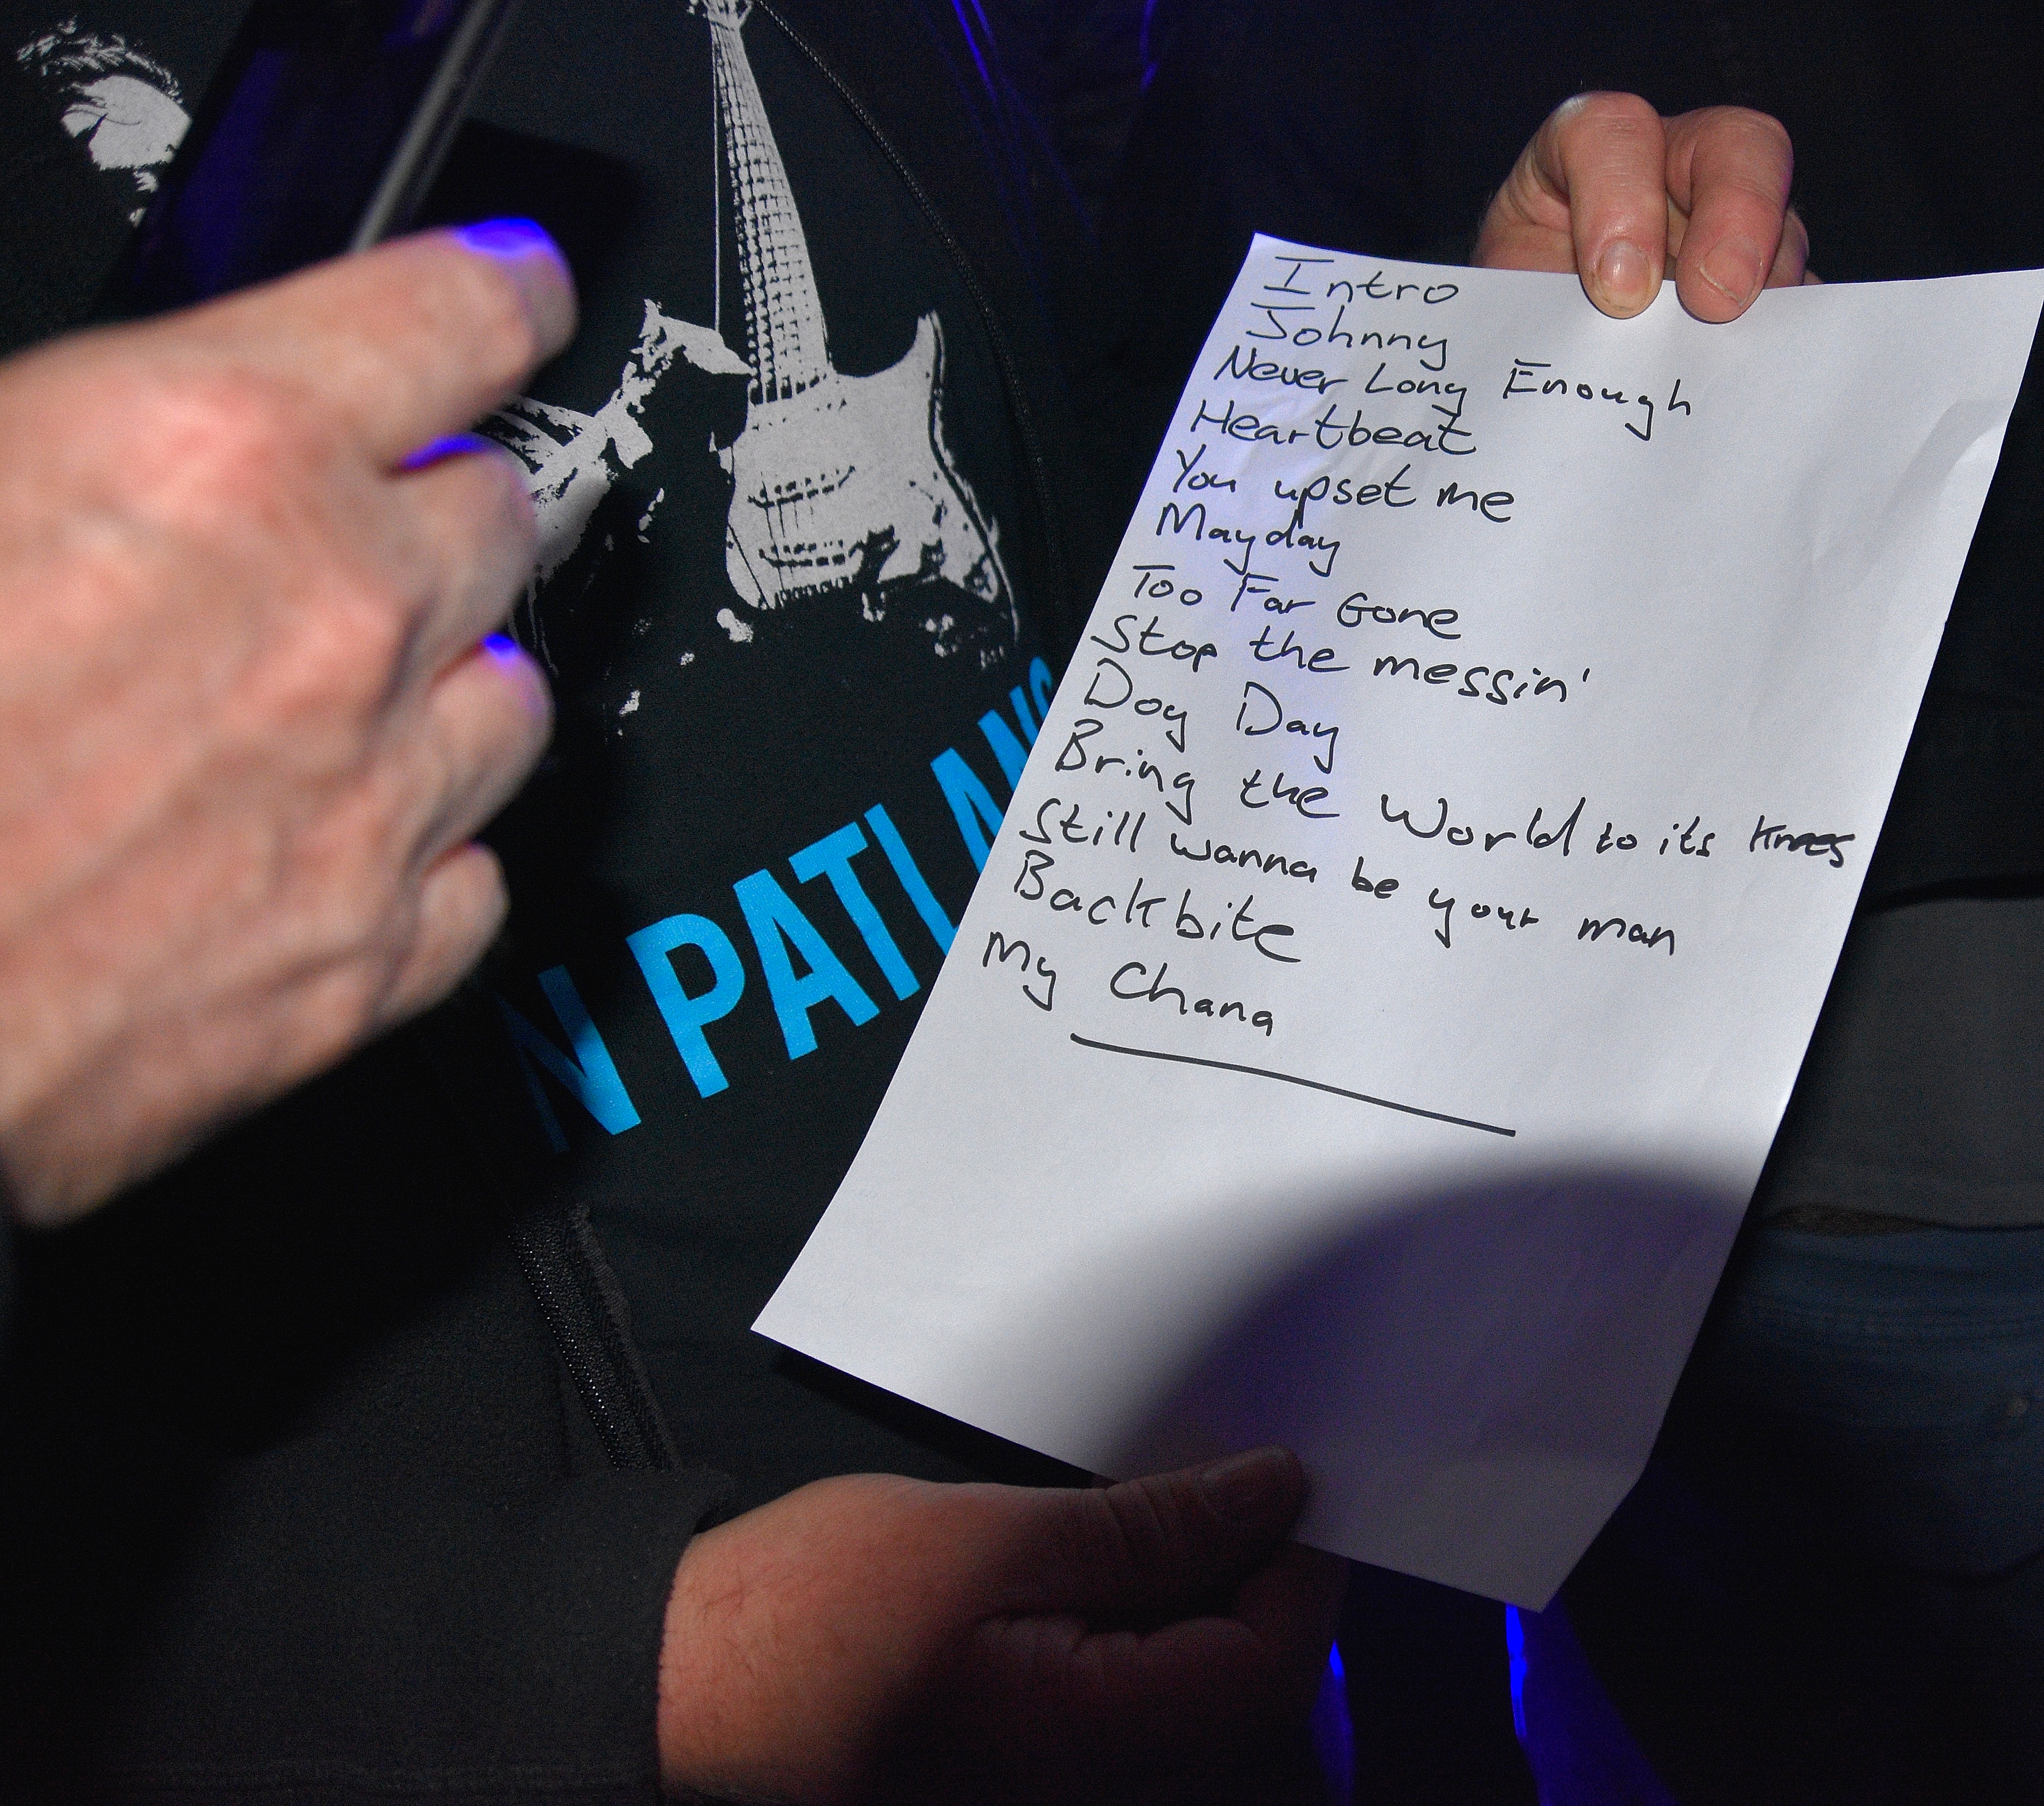 Intro
Johnny
Never Long Enough
Heartbeat
You upset me
Mayday
Too Far Gone
Stop the messin'
Dog Day
Bring the World to its Knees
Still wanna be your man
Backbite
My Chana
N PATLAN